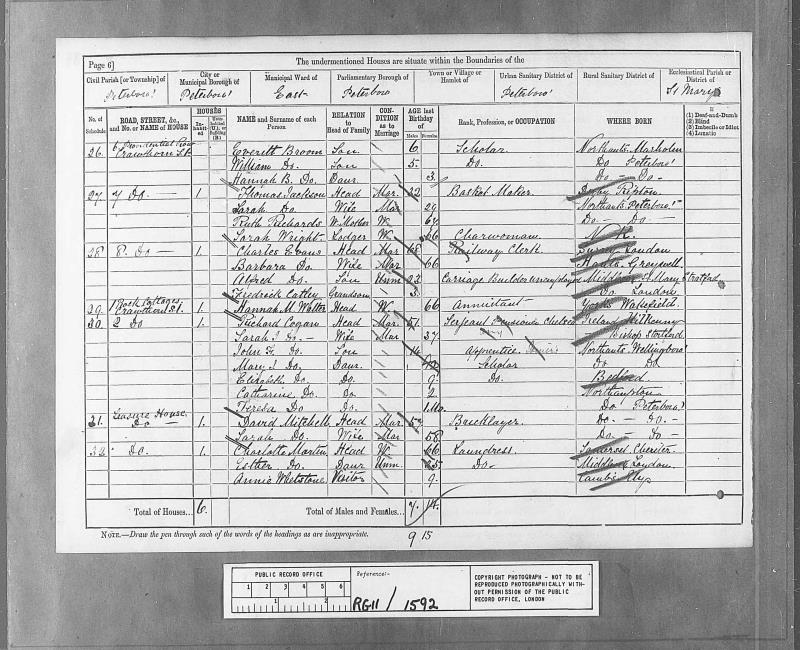 Page 6] The undermentioned Houses are situate within the Boundaries of the
Civil Parish [or Township] of City or Municipal Borough of Municipal Ward of Parliamentary Borough of Town or Village or Hamlet of Urban Sanitary District of Rural Sanitary District of Ecclesiastical Parish or District of
Peterboro' Peterboro' East Peterboro Peterboro' St Marys
No. of Schedule ROAD, STREET, &c., and No. or NAME of HOUSE HOUSES Inhabited Uninhabited (U.), or Building (B.) NAME and Surname of each Person RELATION to Head of Family CONDITION as to Marriage AGE last Birthday of Males Females Rank, Profession, or OCCUPATION WHERE BORN If (1) Deaf-and-Dumb (2) Blind (3) Imbecile or Idiot (4) Lunatic
26. Crawthorn St. Everitt Broom Son 6 Scholar Northants Marholm
William Do. Son 5. Do. Do Peterboro'
Hannah B. Do. Daur. 3. Do - Do -
27. 7 Do 1. Thomas Jackson Head Mar. 22 Basket Maker. Ripton
Sarah Do. Wife Mar 24 Northants Peterboro'
Ruth Richards W. Mother W. 64 Do - Do -
Sarah Wright Lodger W. 66 Charwoman N. K.
28 8. Do 1. Charles Evans Head Mar 68 Railway Clerk. Surrey London
Barbara Do. Wife Mar 66 Hants Greywell
Alfred Do. Son Unm 22 Carriage Builder Middlesex St Mary Stratford
Fredrick Catley Grandson 3. Do London
29. 1 Rock Cottages Crawthorn St. 1. Hannah M. Walter Head W. 66 Annuitant Yorks Wakefield.
30. 2 Do 1. Richard Cogan Head Mar. 51 Serjeant Pensioner Chelsea Ireland Kilkenny
Sarah J Do. - Wife Mar 37. Bishop Stortford
John F. Do. Son 14 Apprentice Northants Wellingboro'
Mary J. Do. Daur. 10 Scholar Do Do
Elizabeth Do. Do. 9. Do. Bedford
Catharine Do. Do. 2 Northampton
Teresa Do Do. 1 Mo. Do. Peterboro'
31. House Do 1. David Mitchell Head Mar. 52 Bricklayer. Do. - Do. -
Sarah Do. Wife Mar 58 Do - Do -
32 Do. 1. Charlotte Martin Head W. 66 Laundress. Somerset
Esther Do. Daur Unm. 25. Do. Middlesex London.
Annie Whetstone Visitor 9. Cambs Ely
Total of Houses... 6. Total of Males and Females... 7. 14.
NOTE.—Draw the pen through such of the words of the headings as are inappropriate. 9 15
PUBLIC RECORD OFFICE Reference:-
1 2
RG11 / 1592
COPYRIGHT PHOTOGRAPH - NOT TO BE
REPRODUCED PHOTOGRAPHICALLY WITH-
OUT PERMISSION OF THE PUBLIC
RECORD OFFICE, LONDON